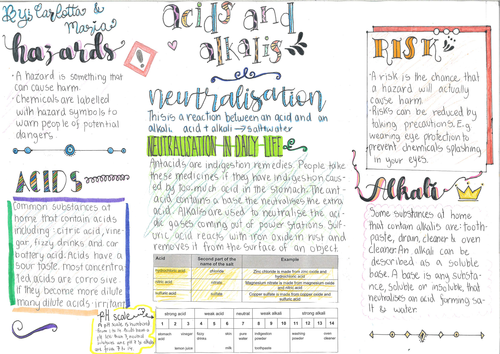 By: Carlotta &
Maria
hazards
· A hazard is something that
can cause harm.
· Chemicals are labelled
with hazard symbols to
warn people of potential
dangers.
!
acids and
alkalis
neutralisation
This is a reaction between an acid and an
alkali. acid + alkali → salt + water
NEUTRALISATION IN DAILY LIFE
Antacids are indigestion remedies. People take
these medicines if they have indigestion caus-
ed by too much acid in the stomach. The ant-
acid contains a base the neutralises the extra
acid. Alkalis are used to neutralise the aci-
dic gases coming out of power stations. Sulf-
uric acid reacts with iron oxide in rust and
removes it from the surface of an object.
RISK
· A risk is the chance that
a hazard will actually
cause harm.
· Risks can be reduced by
taking precautions. E.g
wearing eye protection to
prevent chemicals splashing
in your eyes.
ACIDS
Common substances at
home that contain acids
including : citric acid, vine-
gar, fizzy drinks and car
battery acid. Acids have a
sour taste. Most concentra-
ted acids are corrosive
if they become more dilute
many dilute acids irritant
Alkali
Some substances at home
that contain alkalis are: tooth-
paste, drain cleaner & oven
cleaner. An alkali can be
described as a soluble
base. A base is any substa-
nce, soluble or insoluble, that
neutralises an acid forming sa-
lt & water.
Acid Second part of the name of the salt Example
hydrochloric acid chloride Zinc chloride is made from zinc oxide and hydrochloric acid
nitric acid nitrate Magnesium nitrate is made from magnesium oxide and nitric acid
sulfuric acid sulfate Copper sulfate is made from copper oxide and sulfuric acid
pH scale
strong acid weak acid neutral weak alkali strong alkali
1 2 3 4 5 6 7 8 9 10 11 12 13 14
stomach acid vinegar fizzy drinks skin pure water indigestion powder washing powder oven cleaner
lemon juice milk toothpaste